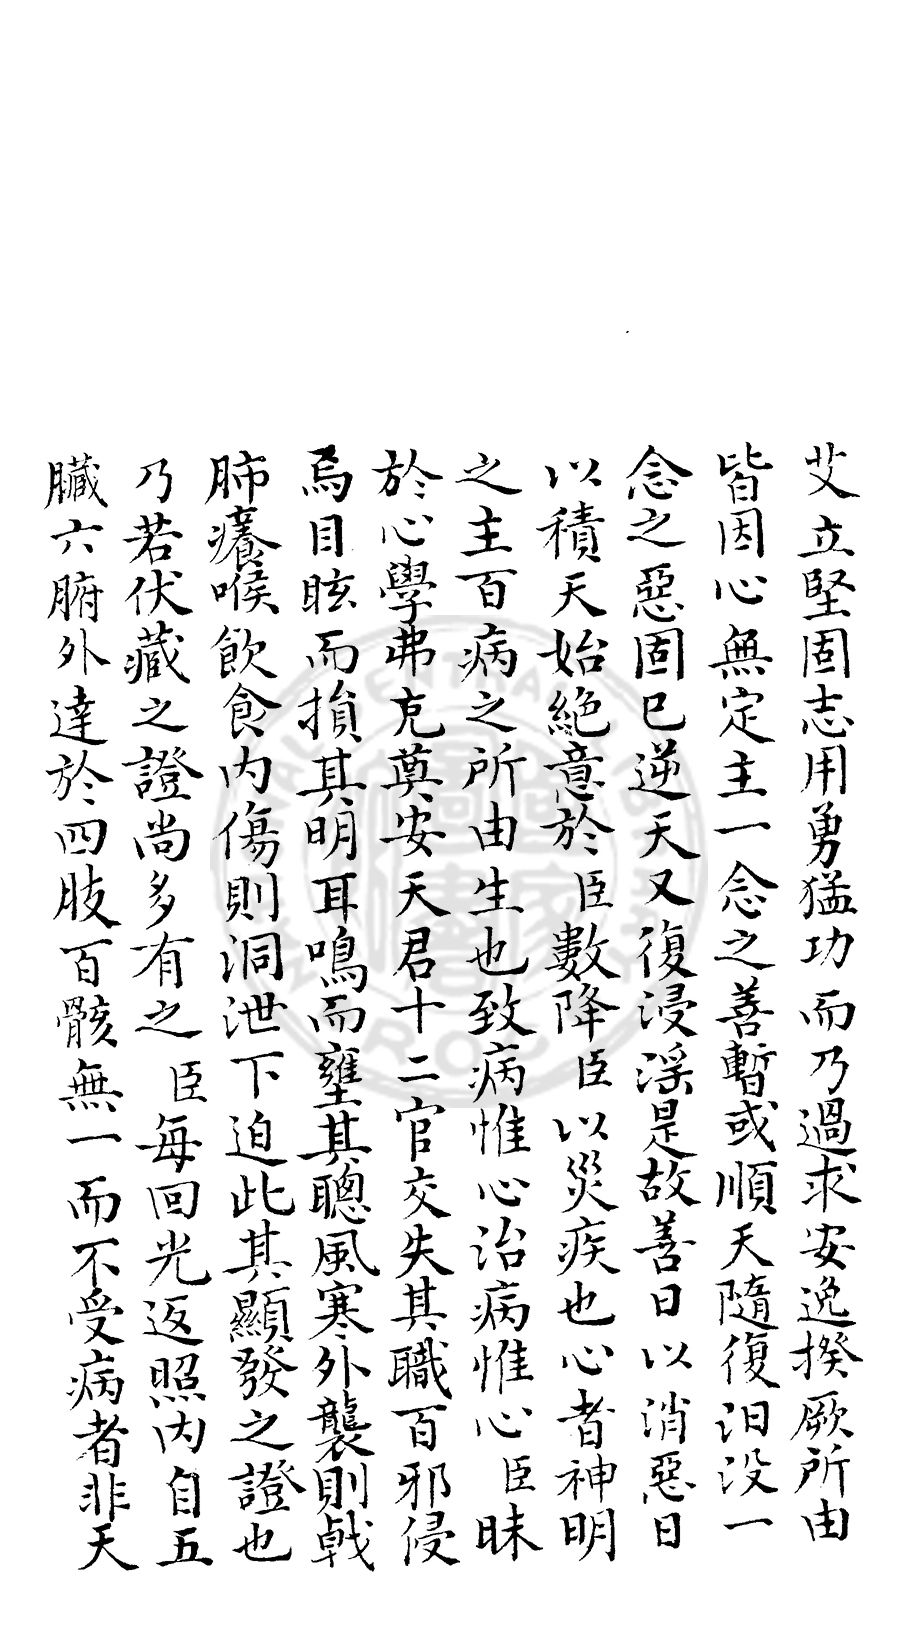 艾立堅固志用勇猛功而乃過求安逸揆厥所由
皆因心無定主一念之善暫或順天隨復汨没一
念之惡固已逆天又復浸淫是故善日以消惡日
以積天始絕意於臣數降臣以災疾也心者神明
之主百病之所由生也致病惟心治病惟心臣昧
於心學弗克奠安天君十二官交失其職百邪侵
焉目眩而損其明耳鳴而壅其聰風寒外襲則戟
肺癢喉飲食內傷則洞泄下迫此其顯發之證也
乃若伏藏之證尚多有之臣每回光返照內自五
臟六腑外達於四肢百骸無一而不受病者非天